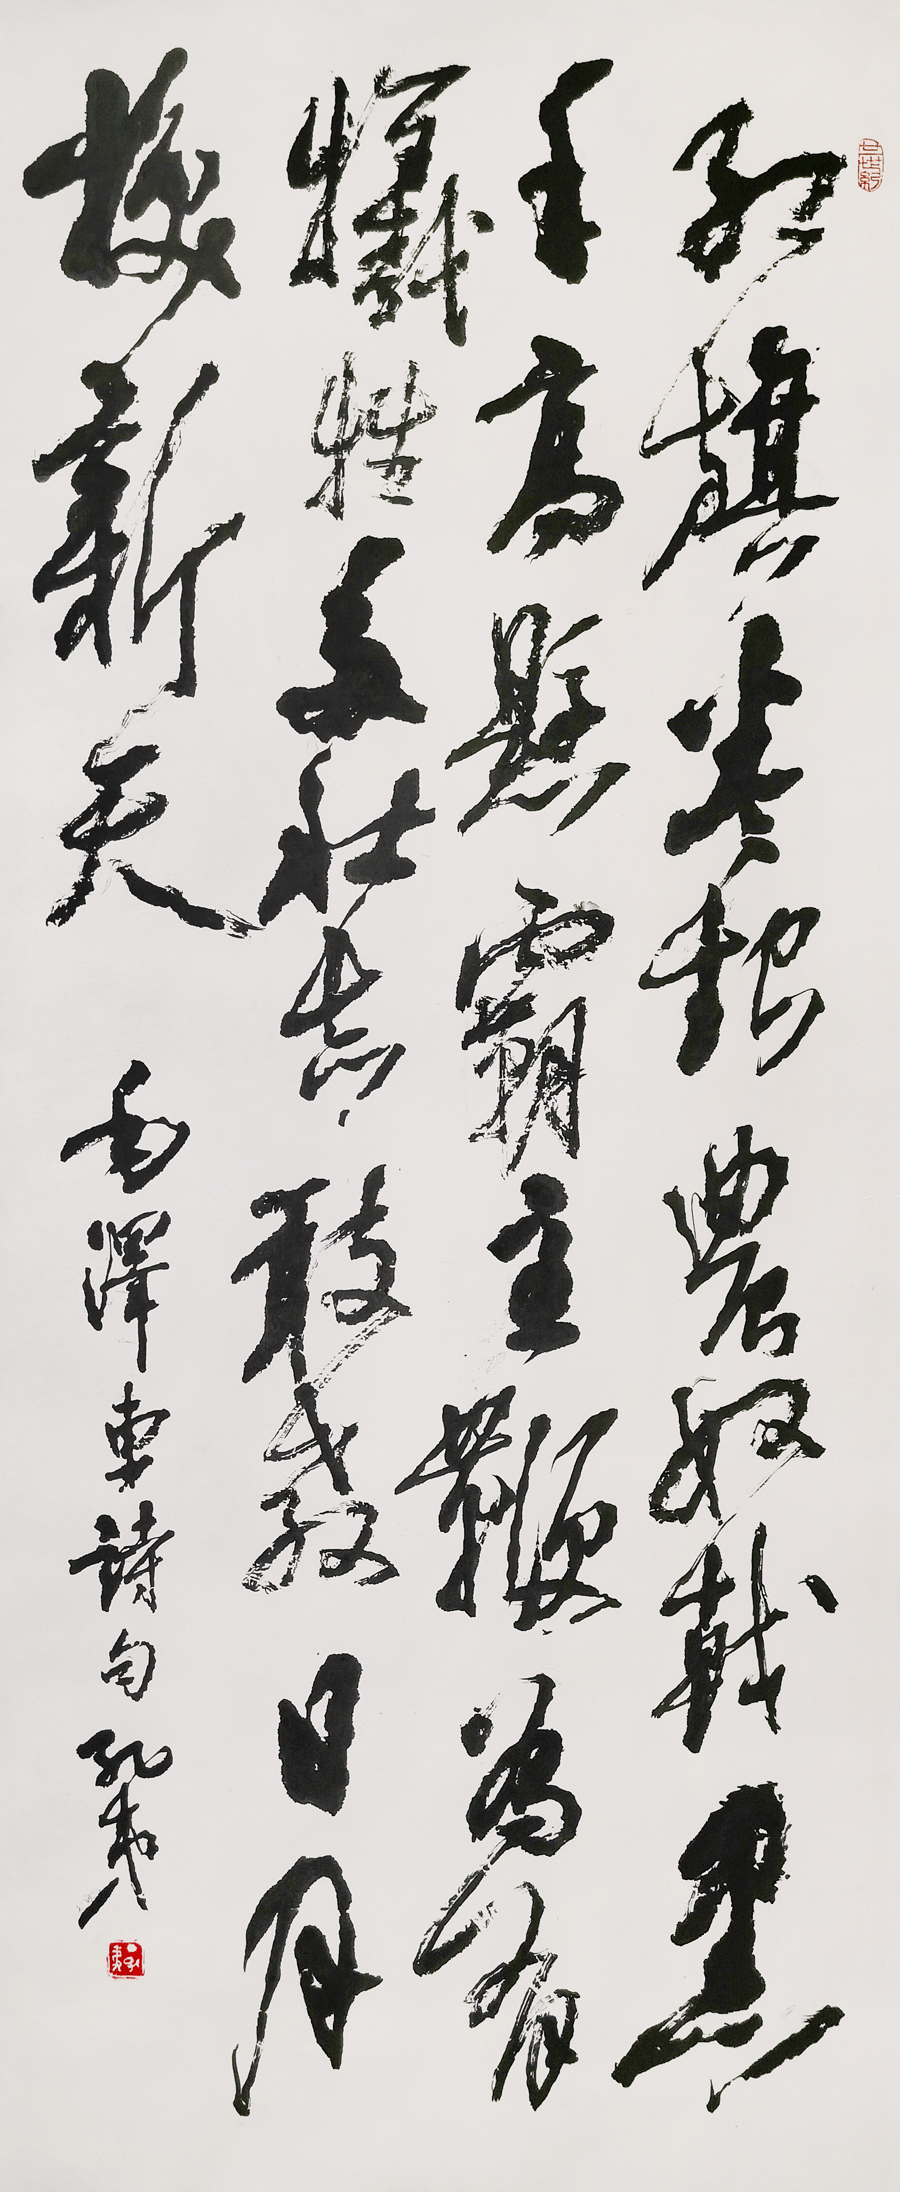 紅旗卷起農奴戟黑
手高懸霸主鞭為有
犧牲多壯志敢教日月
換新天 毛澤東詩句 孔夷